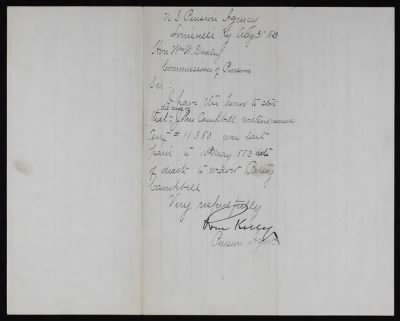 U.S. Pension Agency
Louisville Ky Aug 31
Hon Wm W. Dudley
Commissioner of Pensions
Sir
I have the honor to state
that John Campbell
Certf # 11380 was last
paid to date
of death to widow
Campbell
Very respectfully
Kelly
Pension Agent